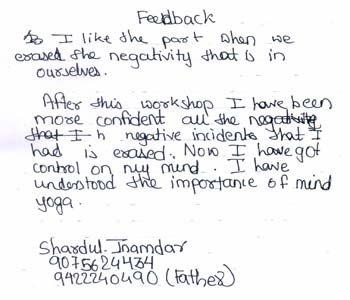 Feedback
I like the part when we
erased the negativity that is in
ourselves.
After this workshop I have been
more confident all the negativity
that I h negative incidents that I
had is erased. Now I have got
control on my mind. I have
understood the importance of mind
yoga.
Shardul. Inamdar
9075624434
9422240490 (Father)